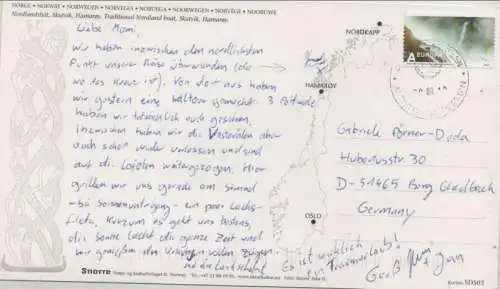 NORGE · NORWAY · NORWEGEN · NORVEGIA · NORUEGA · NOORWEGEN · NORVÈGE · NOORUWE
Nordlandsbåt, Skutvik, Hamarøy. Traditional Nordland boat, Skutvik, Hamarøy.
Liebe Momi,
wir haben inzwischen den nördlichsten
Punkt unserer Reise überwunden (da
wo das Kreuz ist). Von dort aus haben
wir gestern eine Waltour gemacht. 3 Pottwale
haben wir tatsächlich auch gesehen.
Inzwischen haben wir die Vesterålen aber
auch schon wieder verlassen und sind
auf die Lofoten weitergezogen. Hier
grillen wir uns gerade am Strand
- bei Sonnenuntergang - ein paar Lachs-
filets. Kurzum es geht uns bestens,
die Sonne lacht die ganze Zeit und
wir genießen den Urlaub in vollen Zügen
und die Landschaft
Es ist wirklich
ein Traumurlaub!
Gruß
+ Jan
NORDKAPP
HAMARØY
OSLO
A EUROPA
Gabriele Börner-Duda
Hubertusstr. 30
D-51465 Berg. Gladbach
Germany
Snorre
Kortnr. SD502